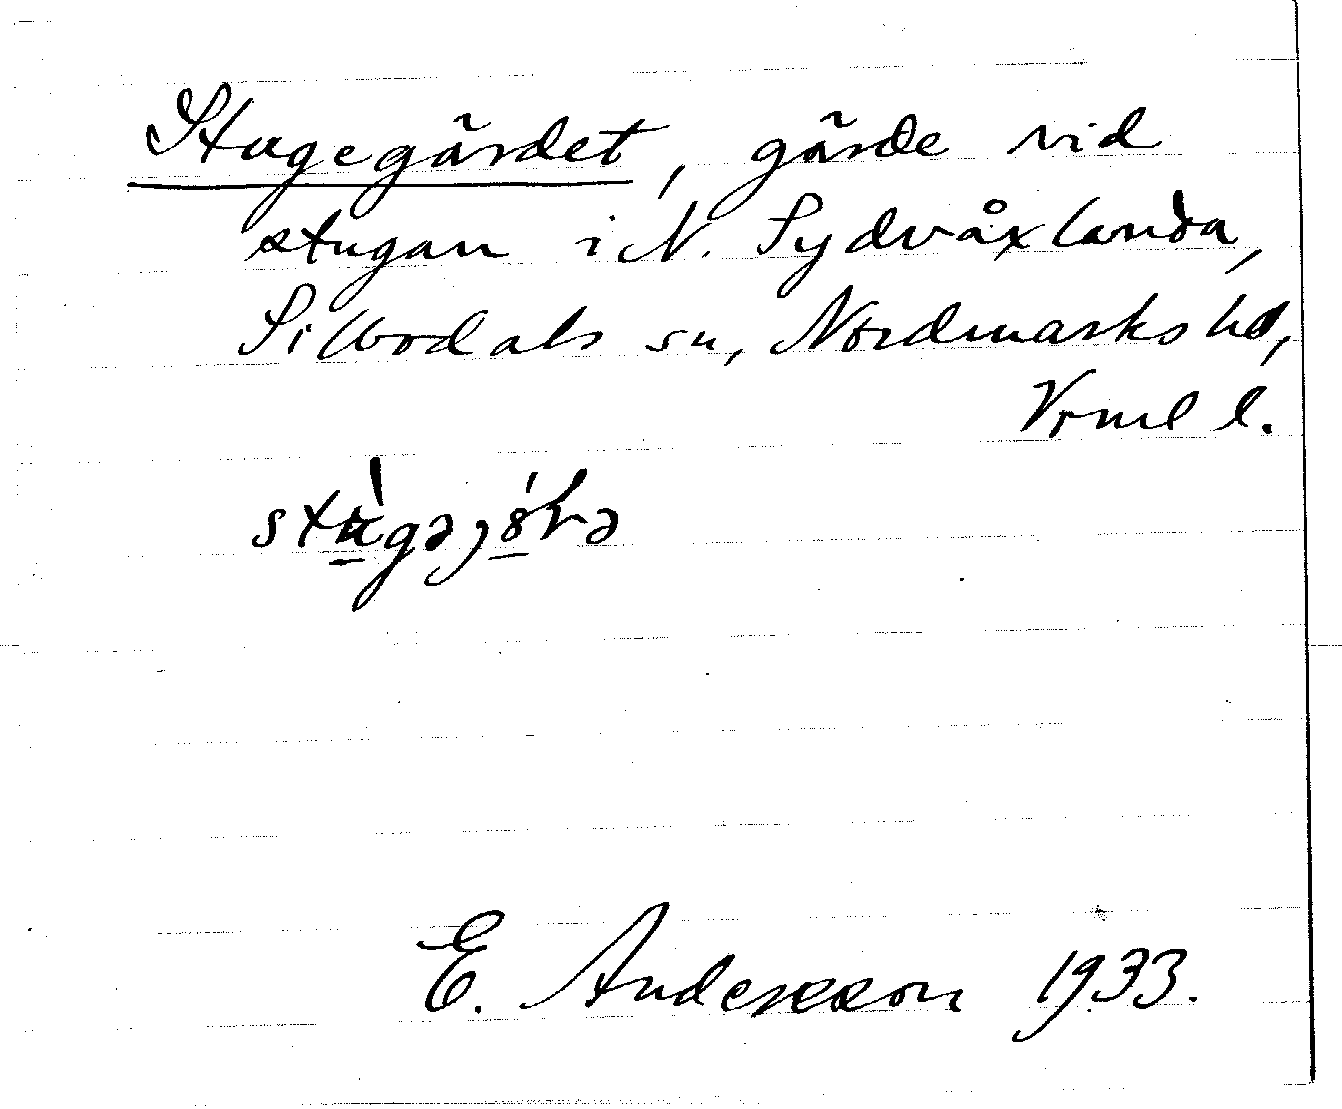 Stugegärdet, gärde vid
stugan i N. Sydvåxlanda,
Silbodals sn, Nordmarks hd,
Vrml l.
E. Andersson 1933.